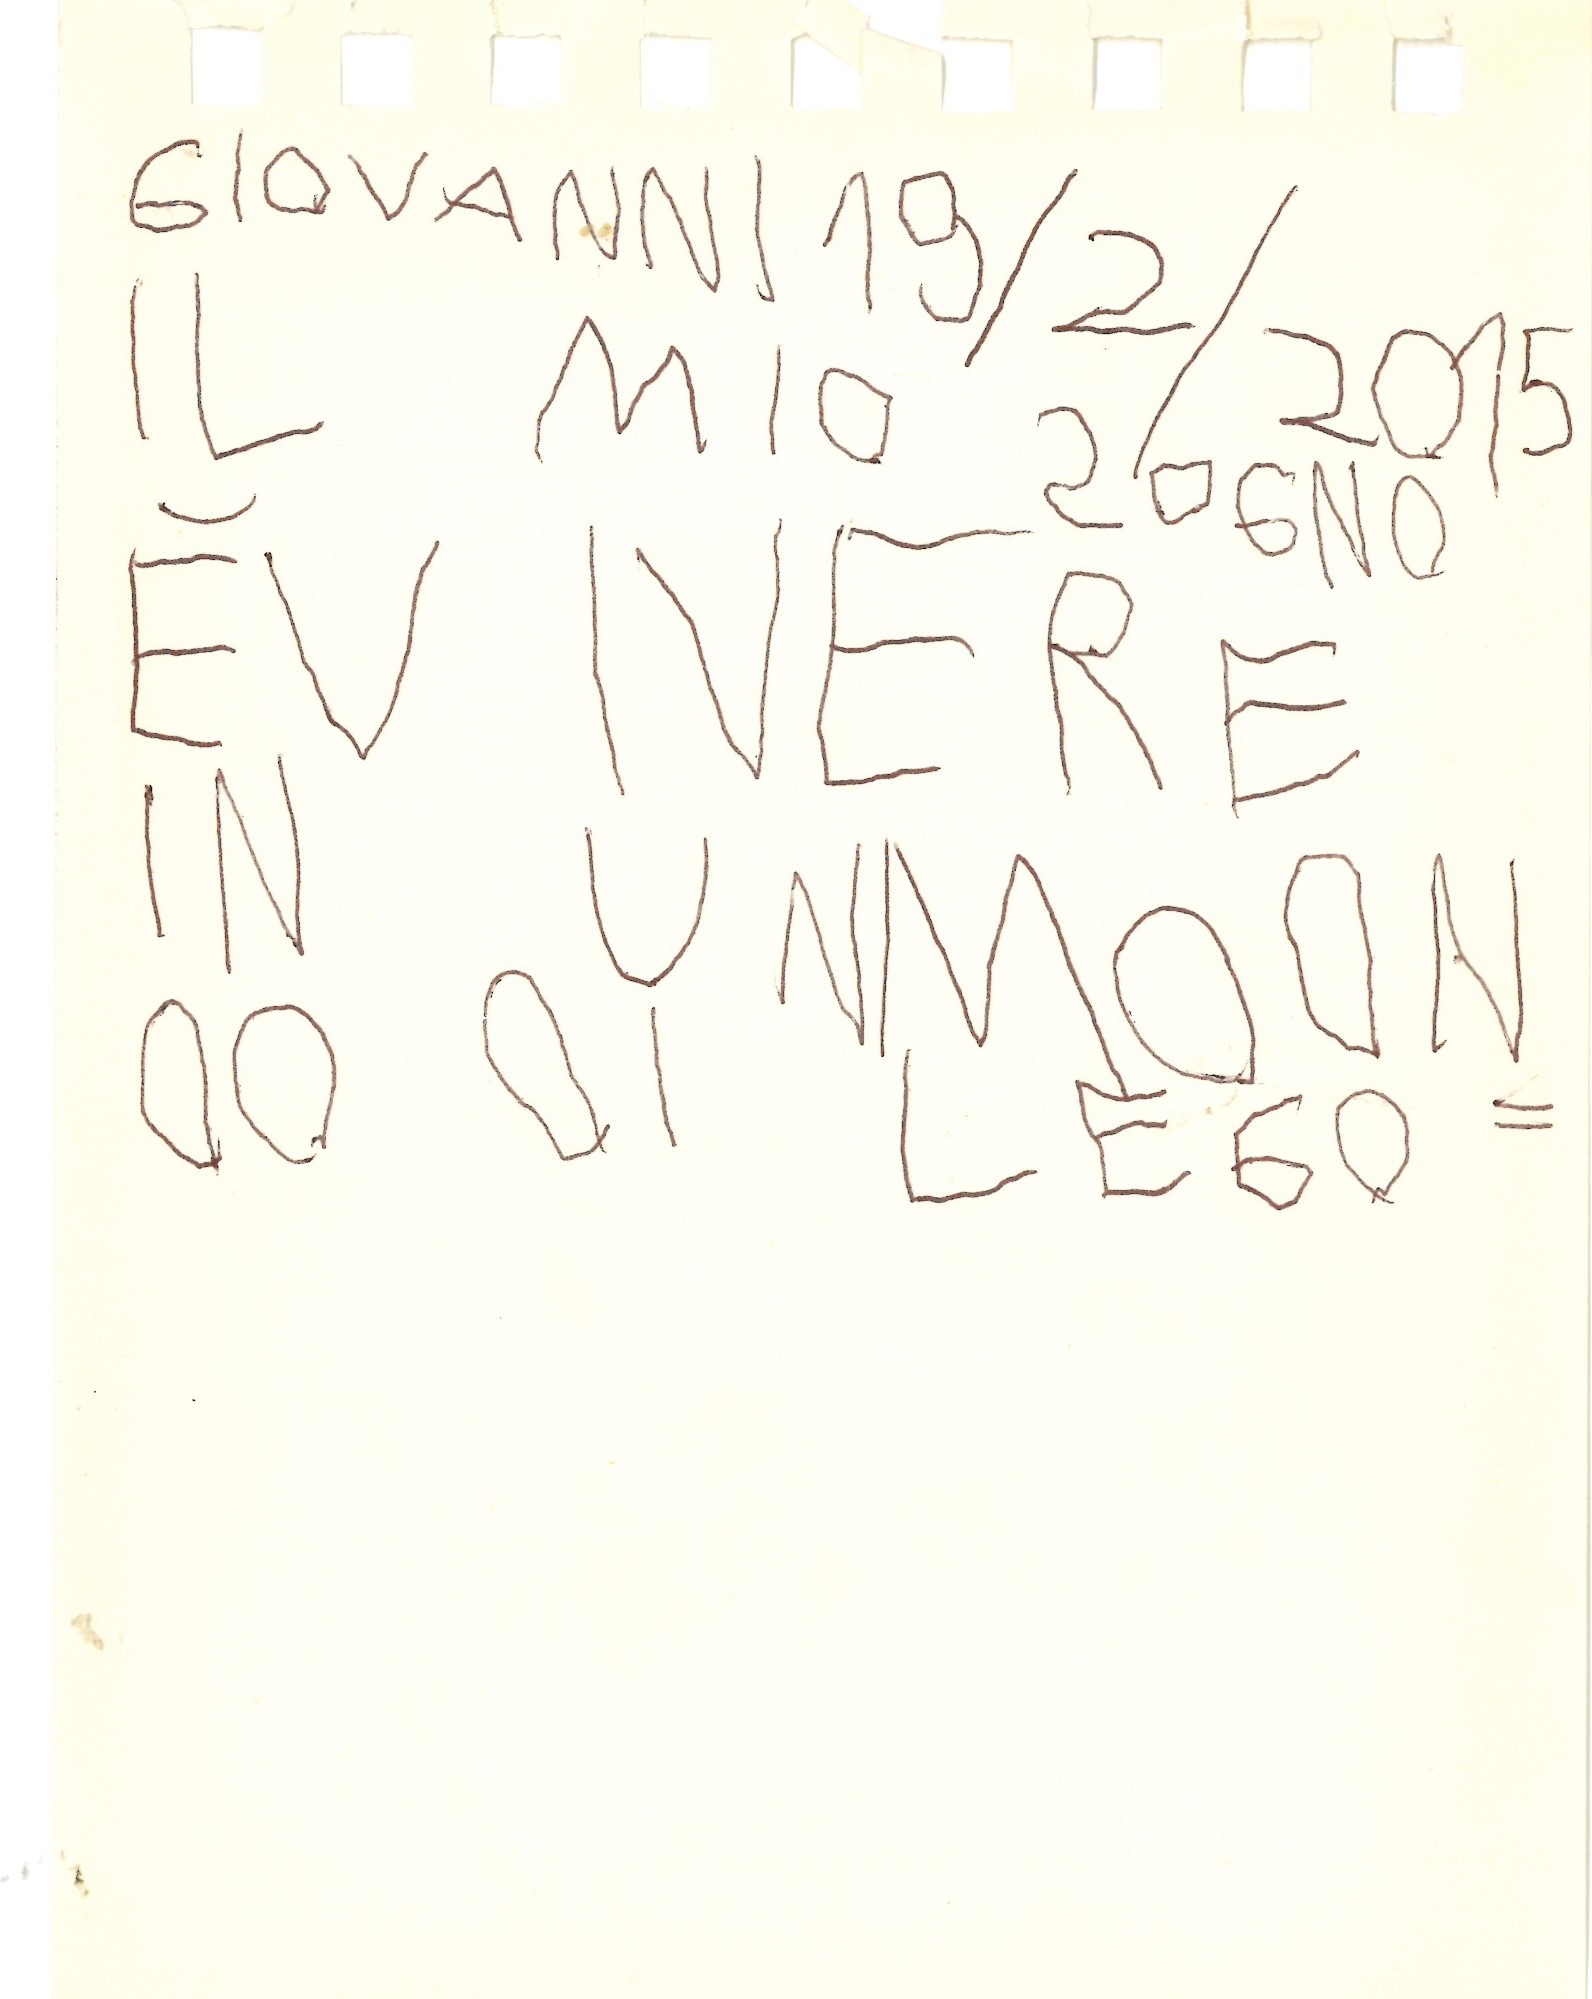 GIOVANNI 19/2/2015
IL MIO 2OGNO
ĔV IVERE
IN UN MODN
DO DI LEGO =